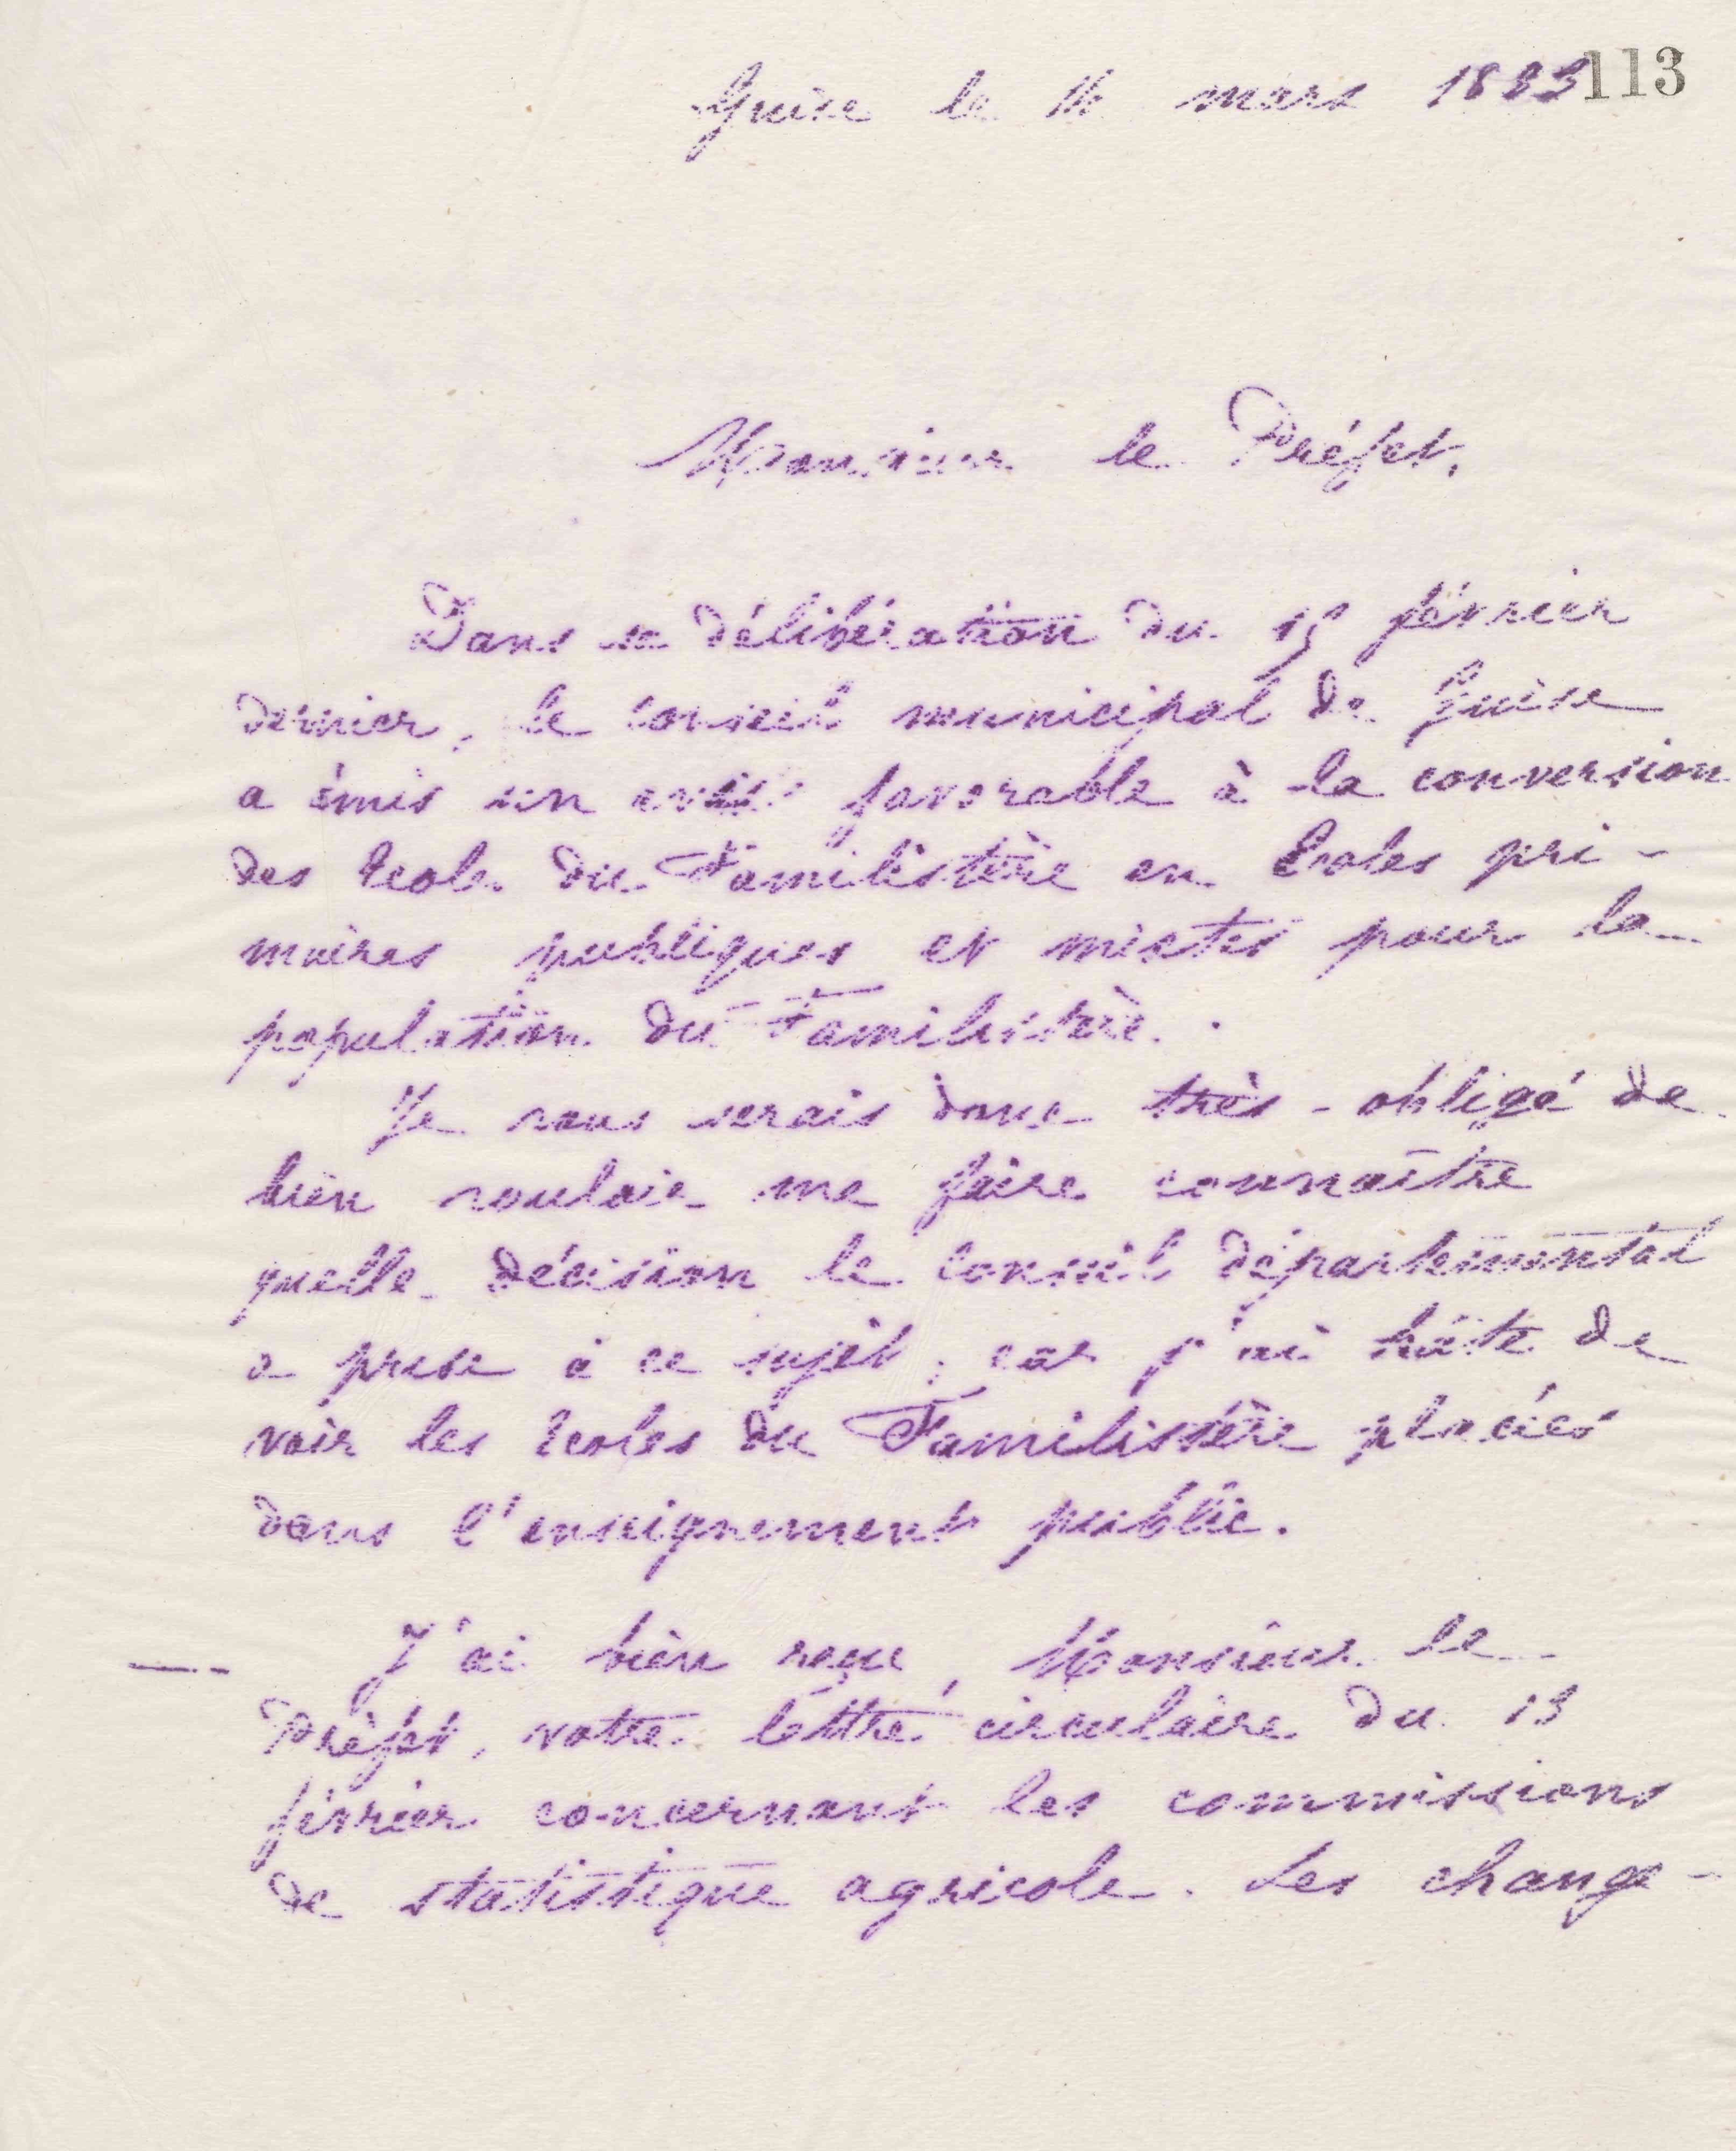 Guise le 16 mars 1883 113
Monsieur le Préfet,
Dans sa délibération du 15 février
dernier, le Conseil municipal de Guise
a émis un avis favorable à la conversion
des Ecoles du Familistère en Ecoles pri-
maires publiques et mixtes pour la
population du Familistère.
Je vous serais donc très-obligé de
bien vouloir me faire connaître
quelle décision le Conseil départemental
a prise à ce sujet, car j'ai hâte de
voir les Ecoles du Familistère placées
dans l'enseignement public.
J'ai bien reçu, Monsieur le
Préfet, votre lettre circulaire du 13
février concernant les commissions
de statistique agricole. Les change-